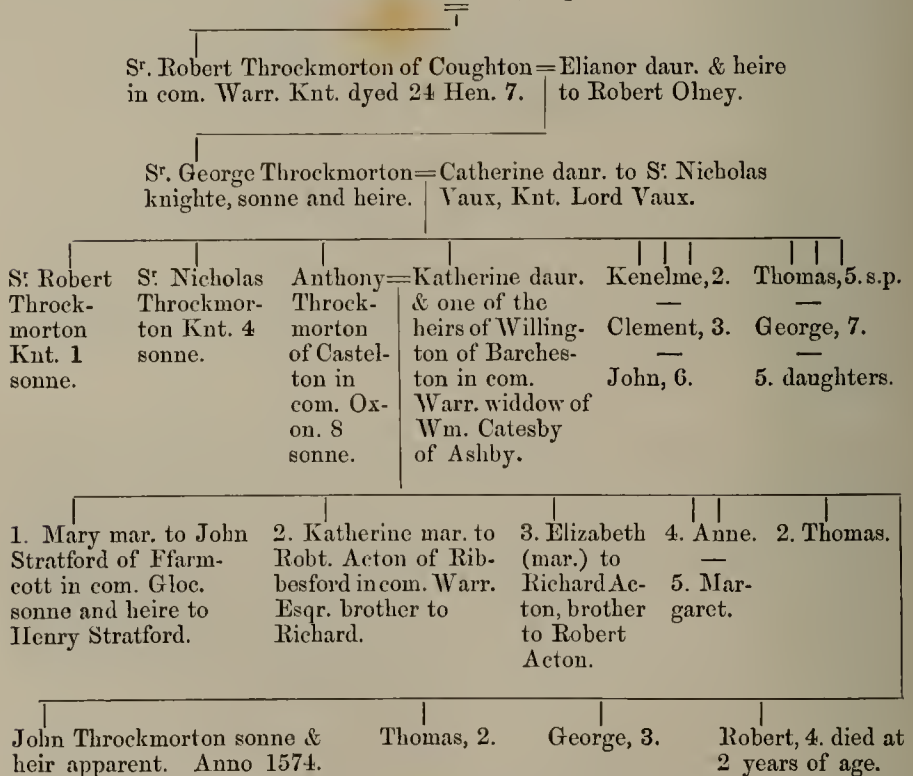 Sr. Robert Throckmorton of Coughton=Elianor daur. & heire
in com. Warr. Knt. dyed 24 Hen. 7. to Robert Olney.
Sr. George Throckmorton=Catherine daur. to Sr. Nicholas
knighte, sonne and heire. Vaux, Knt. Lord Vaux.
Sr. Robert
Throck-
morton
Knt. 1
sonne.
Sr. Nicholas
Throckmor-
ton Knt. 4
sonne.
Anthony=
Throck-
morton
of Castel-
ton in
com. Ox-
on. 8
sonne.
Katherine daur.
& one of the
heirs of Willing-
ton of Barches-
ton in com.
Warr. widdow of
Wm. Catesby
of Ashby.
Kenelme, 2.
—
Clement, 3.
—
John, 6.
Thomas, 5. s.p.
—
George, 7.
—
5. daughters.
1. Mary mar. to John
Stratford of Ffarm-
cott in com. Gloc.
sonne and heire to
Henry Stratford.
2. Katherine mar. to
Robt. Acton of Rib-
besford in com. Warr.
Esqr. brother to
Richard.
3. Elizabeth
(mar.) to
Richard Ac-
ton, brother
to Robert
Acton.
4. Anne.
—
5. Mar-
garet.
2. Thomas.
John Throckmorton sonne &
heir apparent. Anno 1574.
Thomas, 2.
George, 3.
Robert, 4. died at
2 years of age.